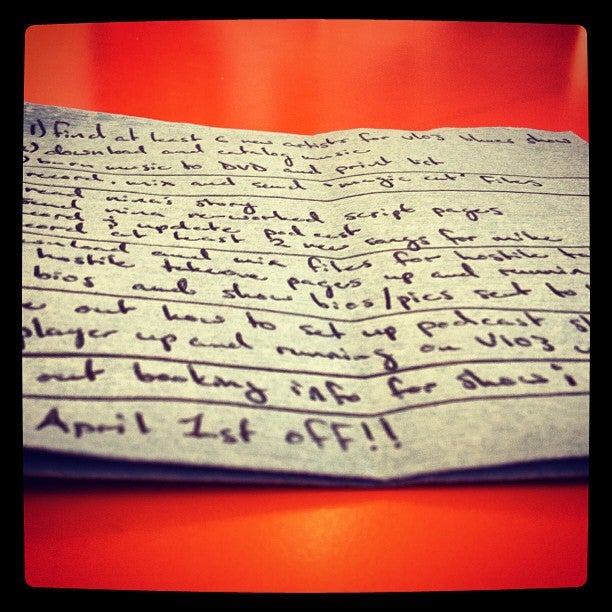 1) find at least 6 new artists for V103 blues show
) download and catalog music
) burn music to DVD and print list
record, mix and send "magic cut" files
read nina's story
send nina reworked script pages
record & update podcast
record at least 2 new songs for mike
download and mix files for hostile
hostile takeover pages up and runnin
bios and show bios/pics sent to
out how to set up podcast
player up and running on V103
out booking info for show's
April 1st off!!